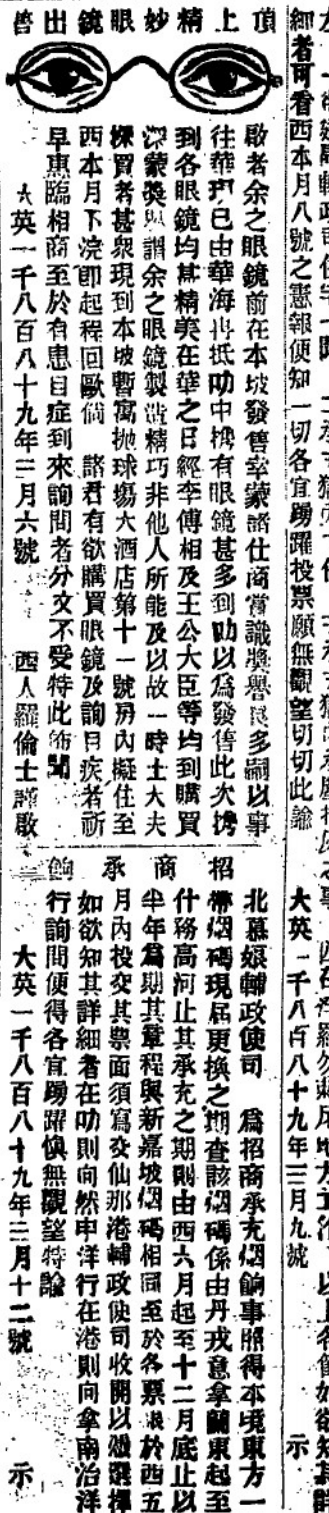 細者可看西本月八號之憲報便知一切各宜踴躍投票願無觀望切切此諭
大英一千八百八十九年三月九號 示
頂上精妙眼鏡出售
啟者余之眼鏡前在本坡發售幸蒙諸仕商賞識獎譽良多嗣以事
往華現已由華海出抵叻中携有眼鏡甚多到叻以爲發售此次携
到各眼鏡均甚精美在華之日經李傅相及王公大臣等均到購買
深蒙獎與謂余之眼鏡製造精巧非他人所能及以故一時士大夫
採買者甚衆現到本坡暫寓拋球塲大酒店第十一號房內擬住至
西本月下浣卽起程回歐倘 諸君有欲購買眼鏡及詢目疾者祈
早惠臨相商至於有患目症到來詢問者分文不受特此佈聞
大英一千八百八十九年三月六號 西人羅倫士謹啟
招商承餉
北慕娘輔政使司 爲招商承充烟餉事照得本境東方一
帶烟碼現屆更換之期查該烟碼係由丹戎意拿蘭東起至
什務高河止其承充之期則由西六月起至十二月底止以
半年爲期其章程與新嘉坡烟碼相同至於各票限於西五
月內投交其票面須寫交仙那港輔政使司收開以便選擇
如欲知其詳細者在叻則向然申洋行在港則向拿南治洋
行詢問便得各宜踴躍慎無觀望特諭
大英一千八百八十九年三月十二號 示